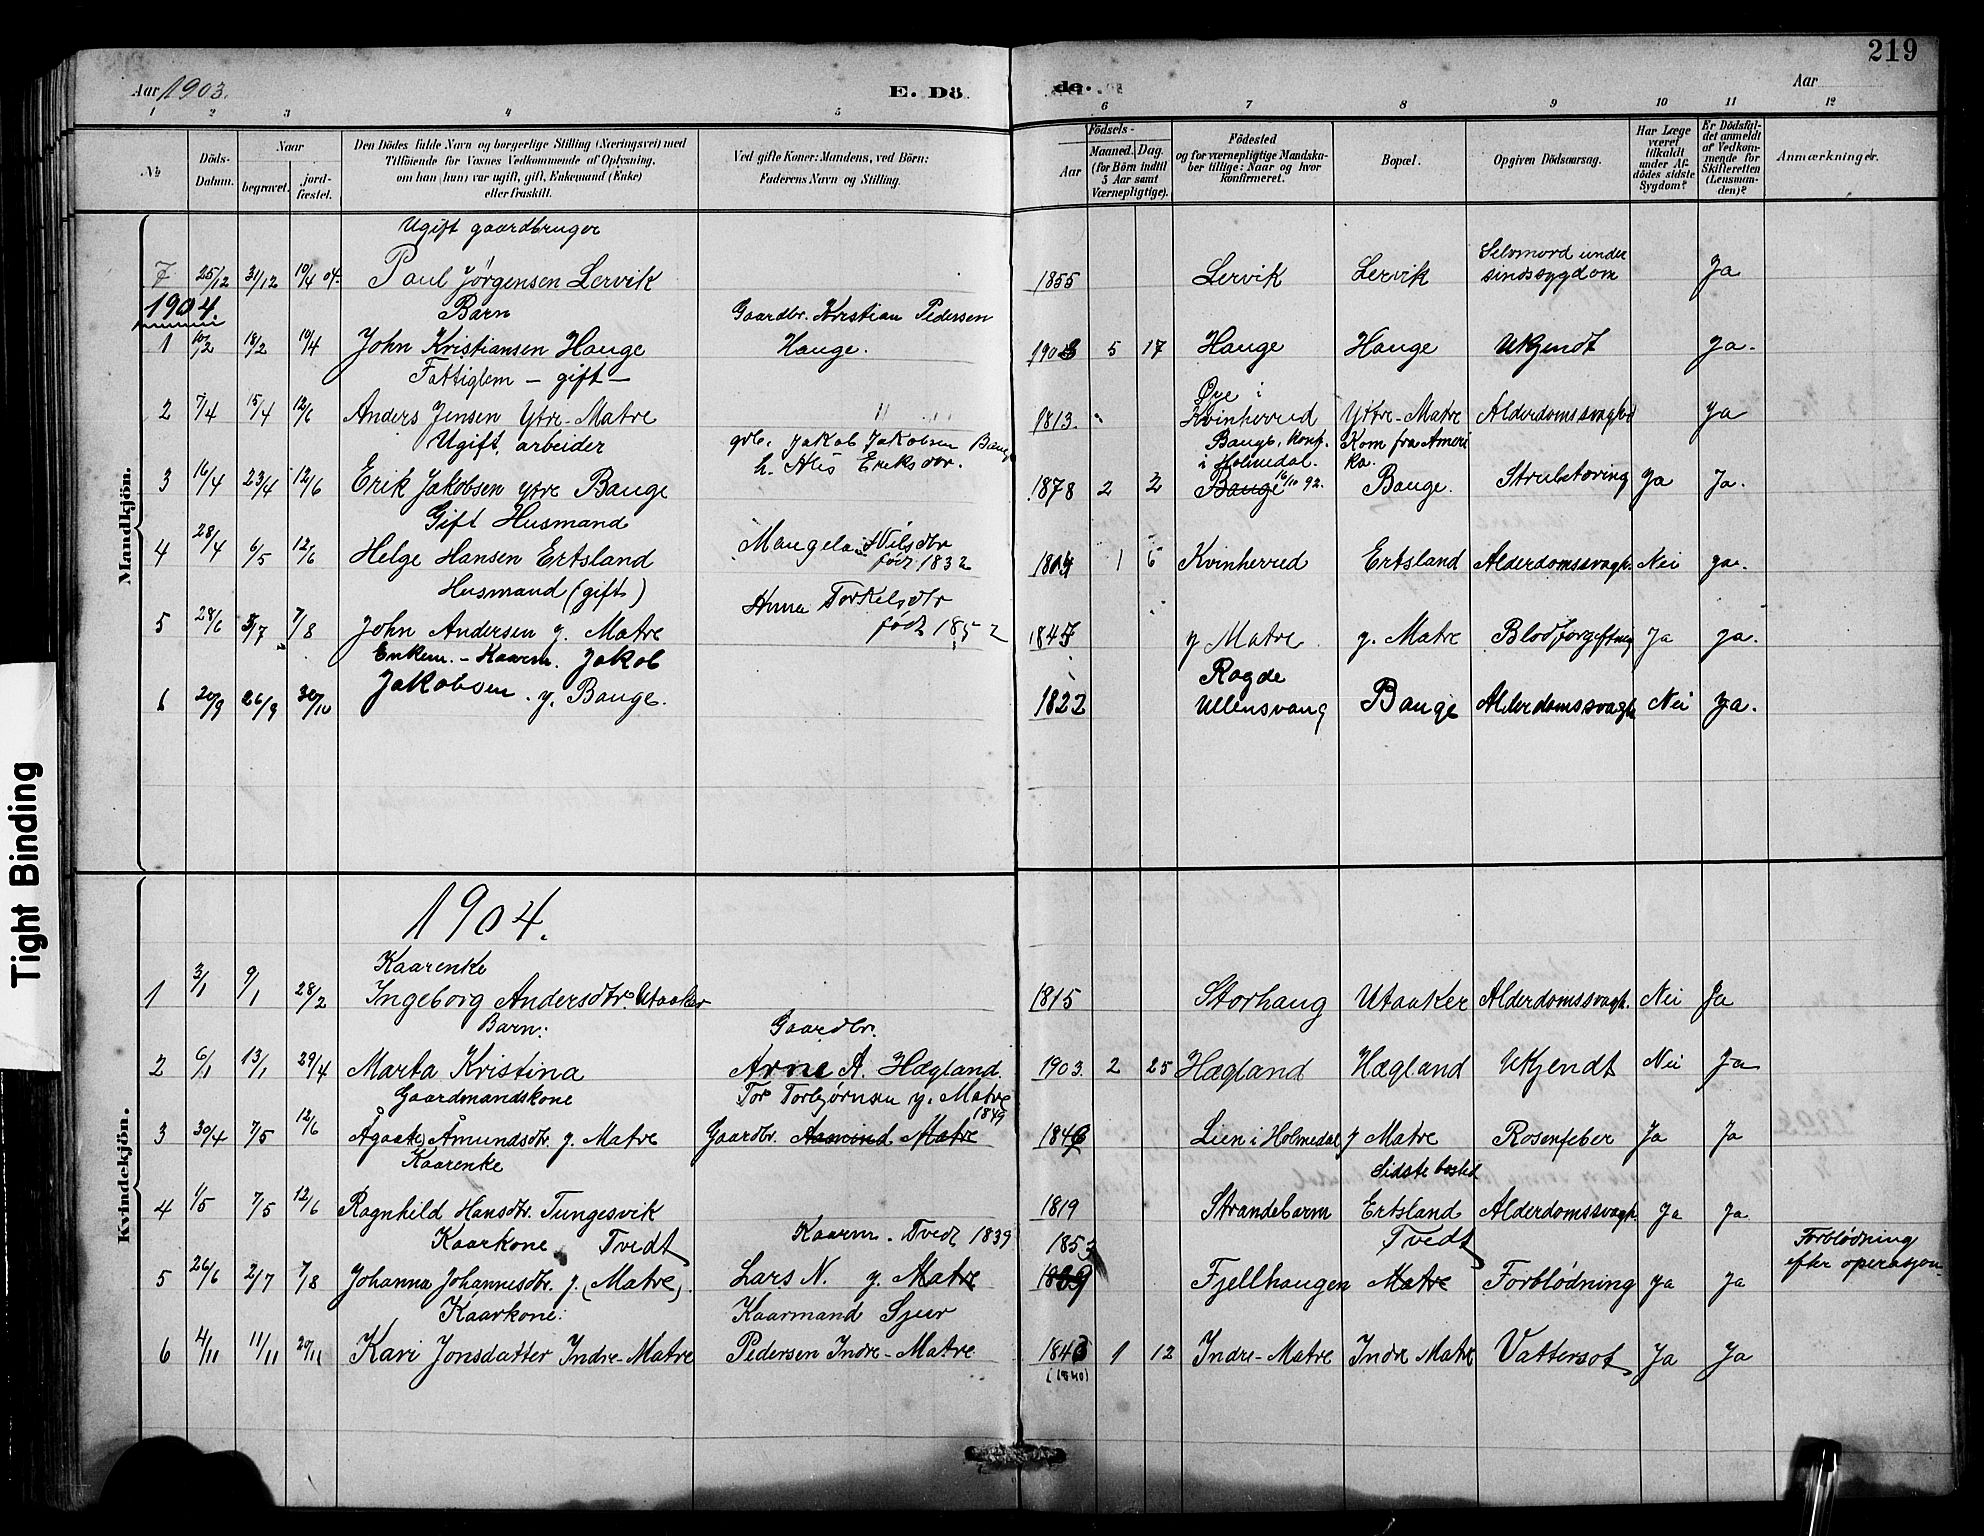 219
Aar 1903. E. Dö de. Aar
1 2 3 4 5 6 7 8 9 10 11 12
No
Döds-Datum.
Naar
begravet.
jord-fæstet.
Den Dödes fulde Navn og borgerlige Stilling (Næringsvei) med
Tilföiende for Voxnes Vedkommende af Oplysning,
om han (hun) var ugift, gift, Enkemand (Enke)
eller fraskilt.
Ved gifte Koner: Mandens, ved Börn:
Faderens Navn og Stilling.
Födsels-
Aar
Maaned. Dag.
(for Börn indtil
5 Aar samt
Værnepligtige).
Födested
og for værnepligtige Mandska-
ber tillige: Naar og hvor
konfirmeret.
Bopæl.
Opgiven Dödsaarsag.
Har Læge
været
tilkaldt
under Af-
dödes sidste
Sygdom?
Er Dödsfal-
det anmeldt
af Vedkom-
mende for
Skifteretten
(Lensman-
den)?
Anmærkninger.
Mandkjön.
Ugift gaardbruger
7 25/12 31/12 10/4 04. Paul Jørgensen Lervik 1855 Lervik Lervik Selvmord under sindssygdom Ja
1904.
Barn Gaardbr. Kristian Pedersen
1 10/2 18/2 10/4 John Kristiansen Hauge Hauge. 1903 5 17 Hauge Hauge Ukjendt Ja.
Fattiglem - gift - Øye i
2 7/4 15/4 12/6 Anders Jensen Ytre-Matre " " 1813. Kvinherred Ytre-Matre Alderdomssvaghed Ja
Ugift, arbeider gbr. Jakob Jakobsen Bauge Bauge, konf. i Holmedal. Kom fra Amerika.
3 16/4 23/4 12/6 Erik Jakobsen ytre Bauge h. Alis Eriksdtr. 1878 2 2 Bauge 16/10 92. Bauge. Strubetæring Ja Ja.
Gift Husmand
4 28/4 6/5 12/6 Helge Hansen Ertsland Mangela Nilsdtr født 1832 1 6 Kvinherred Ertsland Alderdomssvagh. Nei ja.
Husmand (gift)
5 28/6 3/7 7/8 John Andersen y. Matre Anna Torkelsdtr født 1852 1847 y Matre y. Matre Blodforgiftning Ja ja.
Enkem. - Kaarm. Jakob Ragde
6 20/9 26/9 30/10 Jakobsen. y. Bauge. 1822 Ullensvang Bauge Alderdomssvagh. Nei ja.
Kvindekjön.
1904.
Kaarenke
1 3/1 9/1 28/2 Ingeborg Andersdtr. Utaaker 1815 Storhaug Utaaker Alderdomssvagh. Nei Ja
Barn: Gaardbr.
2 6/1 13/1 29/4 Marta Kristina Arne A. Hægland 1903. 2 25 Hægland Hægland Ukjendt Nei Ja
Gaardmandskone Tor Torbjørnsen y. Matre 1849
3 30/4 7/5 12/6 Ågaate Åmundsdtr. y. Matre Gaardbr. Aamund Matre 1846 Lien i Holmedal y Matre Rosenfeber Ja Ja
Kaarenke Sidste bosted
4 1/5 7/5 12/6 Ragnhild Hansdtr. Tungesvik 1819 Strandebarm Ertsland Alderdomssvagh Ja Ja
Kaarkone Tvedt Kaarm. Tvedt 1839 1853 Tvedt Forblødning
5 26/6 2/7 7/8 Johanna Johannesdtr. y. (Matre). Lars N. y. Matre Fjellhaugen Matre Forblødning Ja Ja efter operasjon
Kaarkone: Kaarmand Sjur
6 4/11 11/11 20/11 Kari Jonsdatter Indre-Matre Pedersen Indre-Matre 1843 (1840) 1 12 Indre-Matre Indre Matre Vattersot Ja Ja
Tight Binding